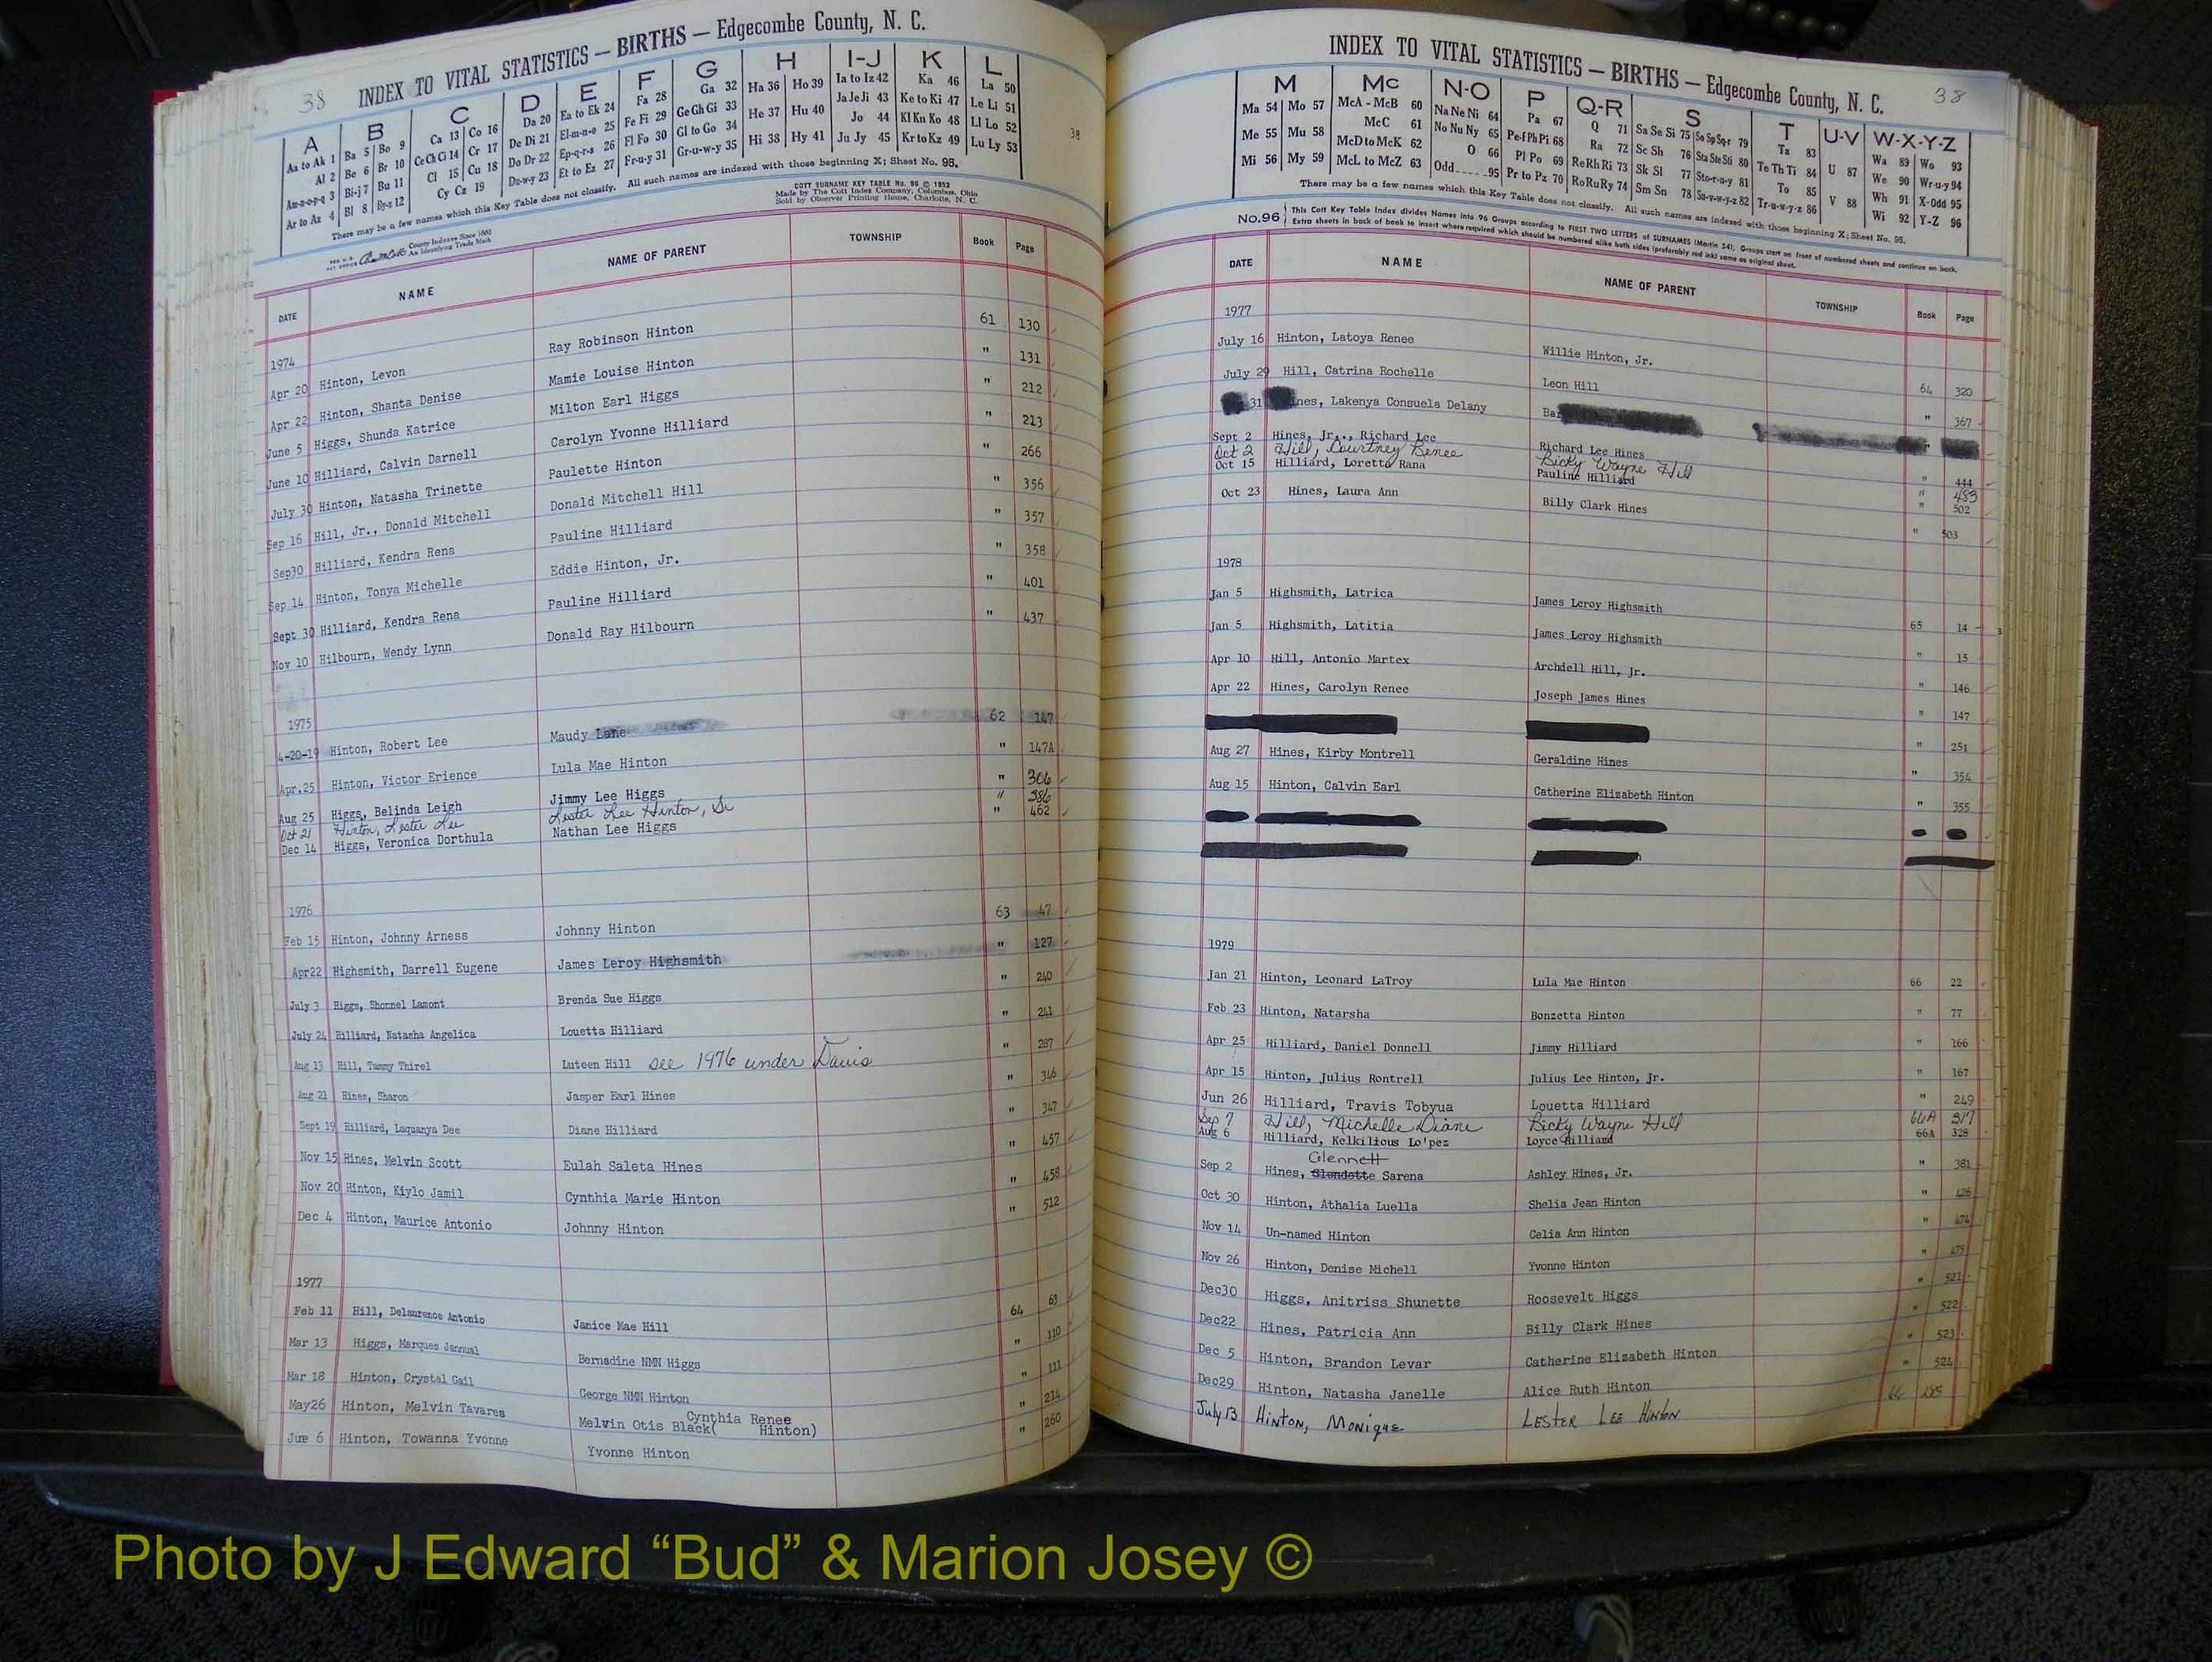 38 INDEX TO VITAL STATISTICS — BIRTHS — Edgecombe County, N. C.
A B C D E F G H I-J K L
Aa to Ak 1 Ba 5 Bo 9 Ca 13 Co 16 Da 20 Ea to Ek 24 Fa 28 Ga 32 Ha 36 Ho 39 Ia to Iz 42 Ka 46 La 50
Al 2 Be 6 Br 10 Ce Ch Ci 14 Cr 17 De Di 21 El-m-n-o 25 Fe Fi 29 Ge Gh Gi 33 He 37 Hu 40 Ja Je Ji 43 Ke to Ki 47 Le Li 51
Am-n-o-p-q 3 Bi-j 7 Bu 11 Cl 15 Cu 18 Do Dr 22 Ep-q-r-s 26 Fl Fo 30 Gl to Go 34 Hi 38 Hy 41 Jo 44 Kl Kn Ko 48 Ll Lo 52
Ar to Az 4 Bl 8 By-z 12 Cy Cz 19 Du-w-y 23 Et to Ez 27 Fr-u-y 31 Gr-u-w-y 35 Ju Jy 45 Kr to Kz 49 Lu Ly 53
38
There may be a few names which this Key Table does not classify. All such names are indexed with those beginning X; Sheet No. 95.
COTT SURNAME KEY TABLE No. 96 © 1952
Made by The Cott Index Company, Columbus, Ohio
Sold by Observer Printing House, Charlotte, N. C.
County Indexes Since 1888
An Identifying Trade Mark
DATE NAME NAME OF PARENT TOWNSHIP Book Page
1974
Apr 20 Hinton, Levon Ray Robinson Hinton 61 130
Apr 22 Hinton, Shanta Denise Mamie Louise Hinton " 131
June 5 Higgs, Shunda Katrice Milton Earl Higgs " 212
June 10 Hilliard, Calvin Darnell Carolyn Yvonne Hilliard " 213
July 30 Hinton, Natasha Trinette Paulette Hinton " 266
Sep 16 Hill, Jr., Donald Mitchell Donald Mitchell Hill " 356
Sep30 Hilliard, Kendra Rena Pauline Hilliard " 357
Sep 14 Hinton, Tonya Michelle Eddie Hinton, Jr. " 358
Sept 30 Hilliard, Kendra Rena Pauline Hilliard " 401
Nov 10 Hilbourn, Wendy Lynn Donald Ray Hilbourn " 437
1975
4-20-19 Hinton, Robert Lee Maudy Lane 62 147
Apr.25 Hinton, Victor Erience Lula Mae Hinton " 147A
Aug 25 Higgs, Belinda Leigh Jimmy Lee Higgs " 306
Oct 21 Hinton, Lester Lee Lester Lee Hinton, Sr " 386
Dec 14 Higgs, Veronica Dorthula Nathan Lee Higgs " 462
1976
Feb 15 Hinton, Johnny Arness Johnny Hinton 63 47
Apr22 Highsmith, Darrell Eugene James Leroy Highsmith " 127
July 3 Higgs, Shonnel Lamont Brenda Sue Higgs " 240
July 24 Hilliard, Natasha Angelica Louetta Hilliard " 241
Aug 13 Hill, Tammy Thirel Luteen Hill see 1976 under Davis " 287
Aug 21 Hines, Sharon Jasper Earl Hines " 346
Sept 19 Hilliard, Laquanya Dee Diane Hilliard " 347
Nov 15 Hines, Melvin Scott Eulah Saleta Hines " 457
Nov 20 Hinton, Kiylo Jamil Cynthia Marie Hinton " 458
Dec 4 Hinton, Maurice Antonio Johnny Hinton " 512
1977
Feb 11 Hill, Delaurence Antonio Janice Mae Hill 64 63
Mar 13 Higgs, Marques Jannual Bernadine NMN Higgs " 110
Mar 18 Hinton, Crystal Gail George NMN Hinton " 111
May26 Hinton, Melvin Tavares Melvin Otis Black( Cynthia Renee Hinton) " 214
June 6 Hinton, Towanna Yvonne Yvonne Hinton " 260
INDEX TO VITAL STATISTICS — BIRTHS — Edgecombe County, N. C. 38
M Mc N-O P Q-R S T U-V W-X-Y-Z
Ma 54 Mo 57 McA - McB 60 Na Ne Ni 64 Pa 67 Q 71 Sa Se Si 75 So Sp Sq-r 79 Ta 83 U 87 Wa 89 Wo 93
Me 55 Mu 58 McC 61 No Nu Ny 65 Pe-f Ph Pi 68 Ra 72 Sc Sh 76 Sta Ste Sti 80 Te Th Ti 84 V 88 We 90 Wr-u-y 94
Mi 56 My 59 McD to McK 62 O 66 Pl Po 69 Re Rh Ri 73 Sk Sl 77 Sto-r-u-y 81 To 85 Wh 91 X-Odd 95
McL to McZ 63 Odd 95 Pr to Pz 70 Ro Ru Ry 74 Sm Sn 78 Su-v-w-y-z 82 Tr-u-w-y-z 86 Wi 92 Y-Z 96
There may be a few names which this Key Table does not classify. All such names are indexed with those beginning X; Sheet No. 95.
No.96 This Cott Key Table Index divides Names into 96 Groups according to FIRST TWO LETTERS of SURNAMES (Martin 54). Groups start on front of numbered sheets and continue on back.
Extra sheets in back of book to insert where required which should be numbered alike both sides (preferably red ink) same as original sheet.
DATE NAME NAME OF PARENT TOWNSHIP Book Page
1977
July 16 Hinton, Latoya Renee Willie Hinton, Jr. 64 320
July 29 Hill, Catrina Rochelle Leon Hill " 367
31 nes, Lakenya Consuela Delany Bar "
Sept 2 Hines, Jr., Richard Lee Richard Lee Hines " 444
Oct 2 Hill, Courtney Renee Ricky Wayne Hill " 483
Oct 15 Hilliard, Loretta Rana Pauline Hilliard " 502
Oct 23 Hines, Laura Ann Billy Clark Hines " 503
1978
Jan 5 Highsmith, Latrica James Leroy Highsmith 65 14
Jan 5 Highsmith, Latitia James Leroy Highsmith " 15
Apr 10 Hill, Antonio Martex Archdell Hill, Jr. " 146
Apr 22 Hines, Carolyn Renee Joseph James Hines " 147
" 251
Aug 27 Hines, Kirby Montrell Geraldine Hines " 354
Aug 15 Hinton, Calvin Earl Catherine Elizabeth Hinton " 355
1979
Jan 21 Hinton, Leonard LaTroy Lula Mae Hinton 66 22
Feb 23 Hinton, Natarsha Bonzetta Hinton " 77
Apr 25 Hilliard, Daniel Donnell Jimmy Hilliard " 166
Apr 15 Hinton, Julius Rontrell Julius Lee Hinton, Jr. " 167
Jun 26 Hilliard, Travis Tobyua Louetta Hilliard " 249
Sep 7 Hill, Michelle Diane Ricky Wayne Hill 66A 317
Aug 6 Hilliard, Kelkilious Lo'pez Loyce Hilliard 66A 328
Glennett
Sep 2 Hines, Glendette Sarena Ashley Hines, Jr. " 381
Oct 30 Hinton, Athalia Luella Shelia Jean Hinton " 426
Nov 14 Un-named Hinton Celia Ann Hinton " 474
Nov 26 Hinton, Denise Michell Yvonne Hinton " 475
Dec30 Higgs, Anitriss Shunette Roosevelt Higgs " 521
Dec22 Hines, Patricia Ann Billy Clark Hines " 522
Dec 5 Hinton, Brandon Levar Catherine Elizabeth Hinton " 523
Dec29 Hinton, Natasha Janelle Alice Ruth Hinton " 524
July 13 Hinton, Monique Lester Lee Hinton 66 285
Photo by J Edward “Bud” & Marion Josey ©